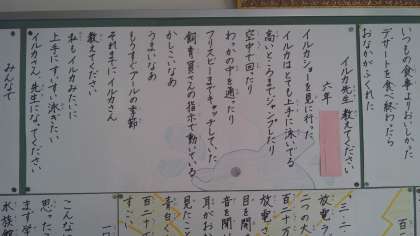 いつもの食事よりおいしかった
デザートを食べ終わったら
おなかがふくれた
イルカ先生 教えてください
六年
イルカショーを見に行った
イルカはとても上手に泳いでる
高いところまでジャンプしたり
空中で回ったり
わっかの中を通ったり
フリスビーまでキャッチしていた
飼育員さんの指示で動いている
かしこいなあ
うまいなあ
もうすぐプールの季節
それまでにイルカさん
教えてください
私もイルカみたいに
上手にすいすい泳ぎたい
イルカさん 先生になってください
みんなで
三・二・一
放電ラ
二つの大
百二十万
放電さ
目を開
音を聞
耳がお
見たこ
青白く
百二十
すごい
こんな
思った
ます学
水族館